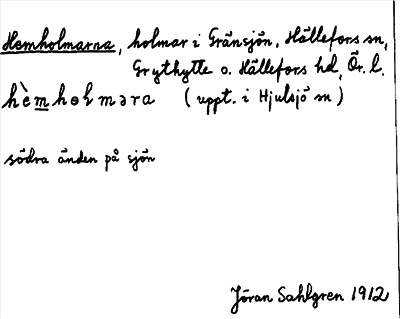 Hemholmarna, holmar i Gränsjön, Hällefors sn,
Grythytte o. Hällefors hd, Ör. l.
hèmhɵhməra (uppt. i Hjulsjö sn)
södra änden på sjön
Jöran Sahlgren 1912